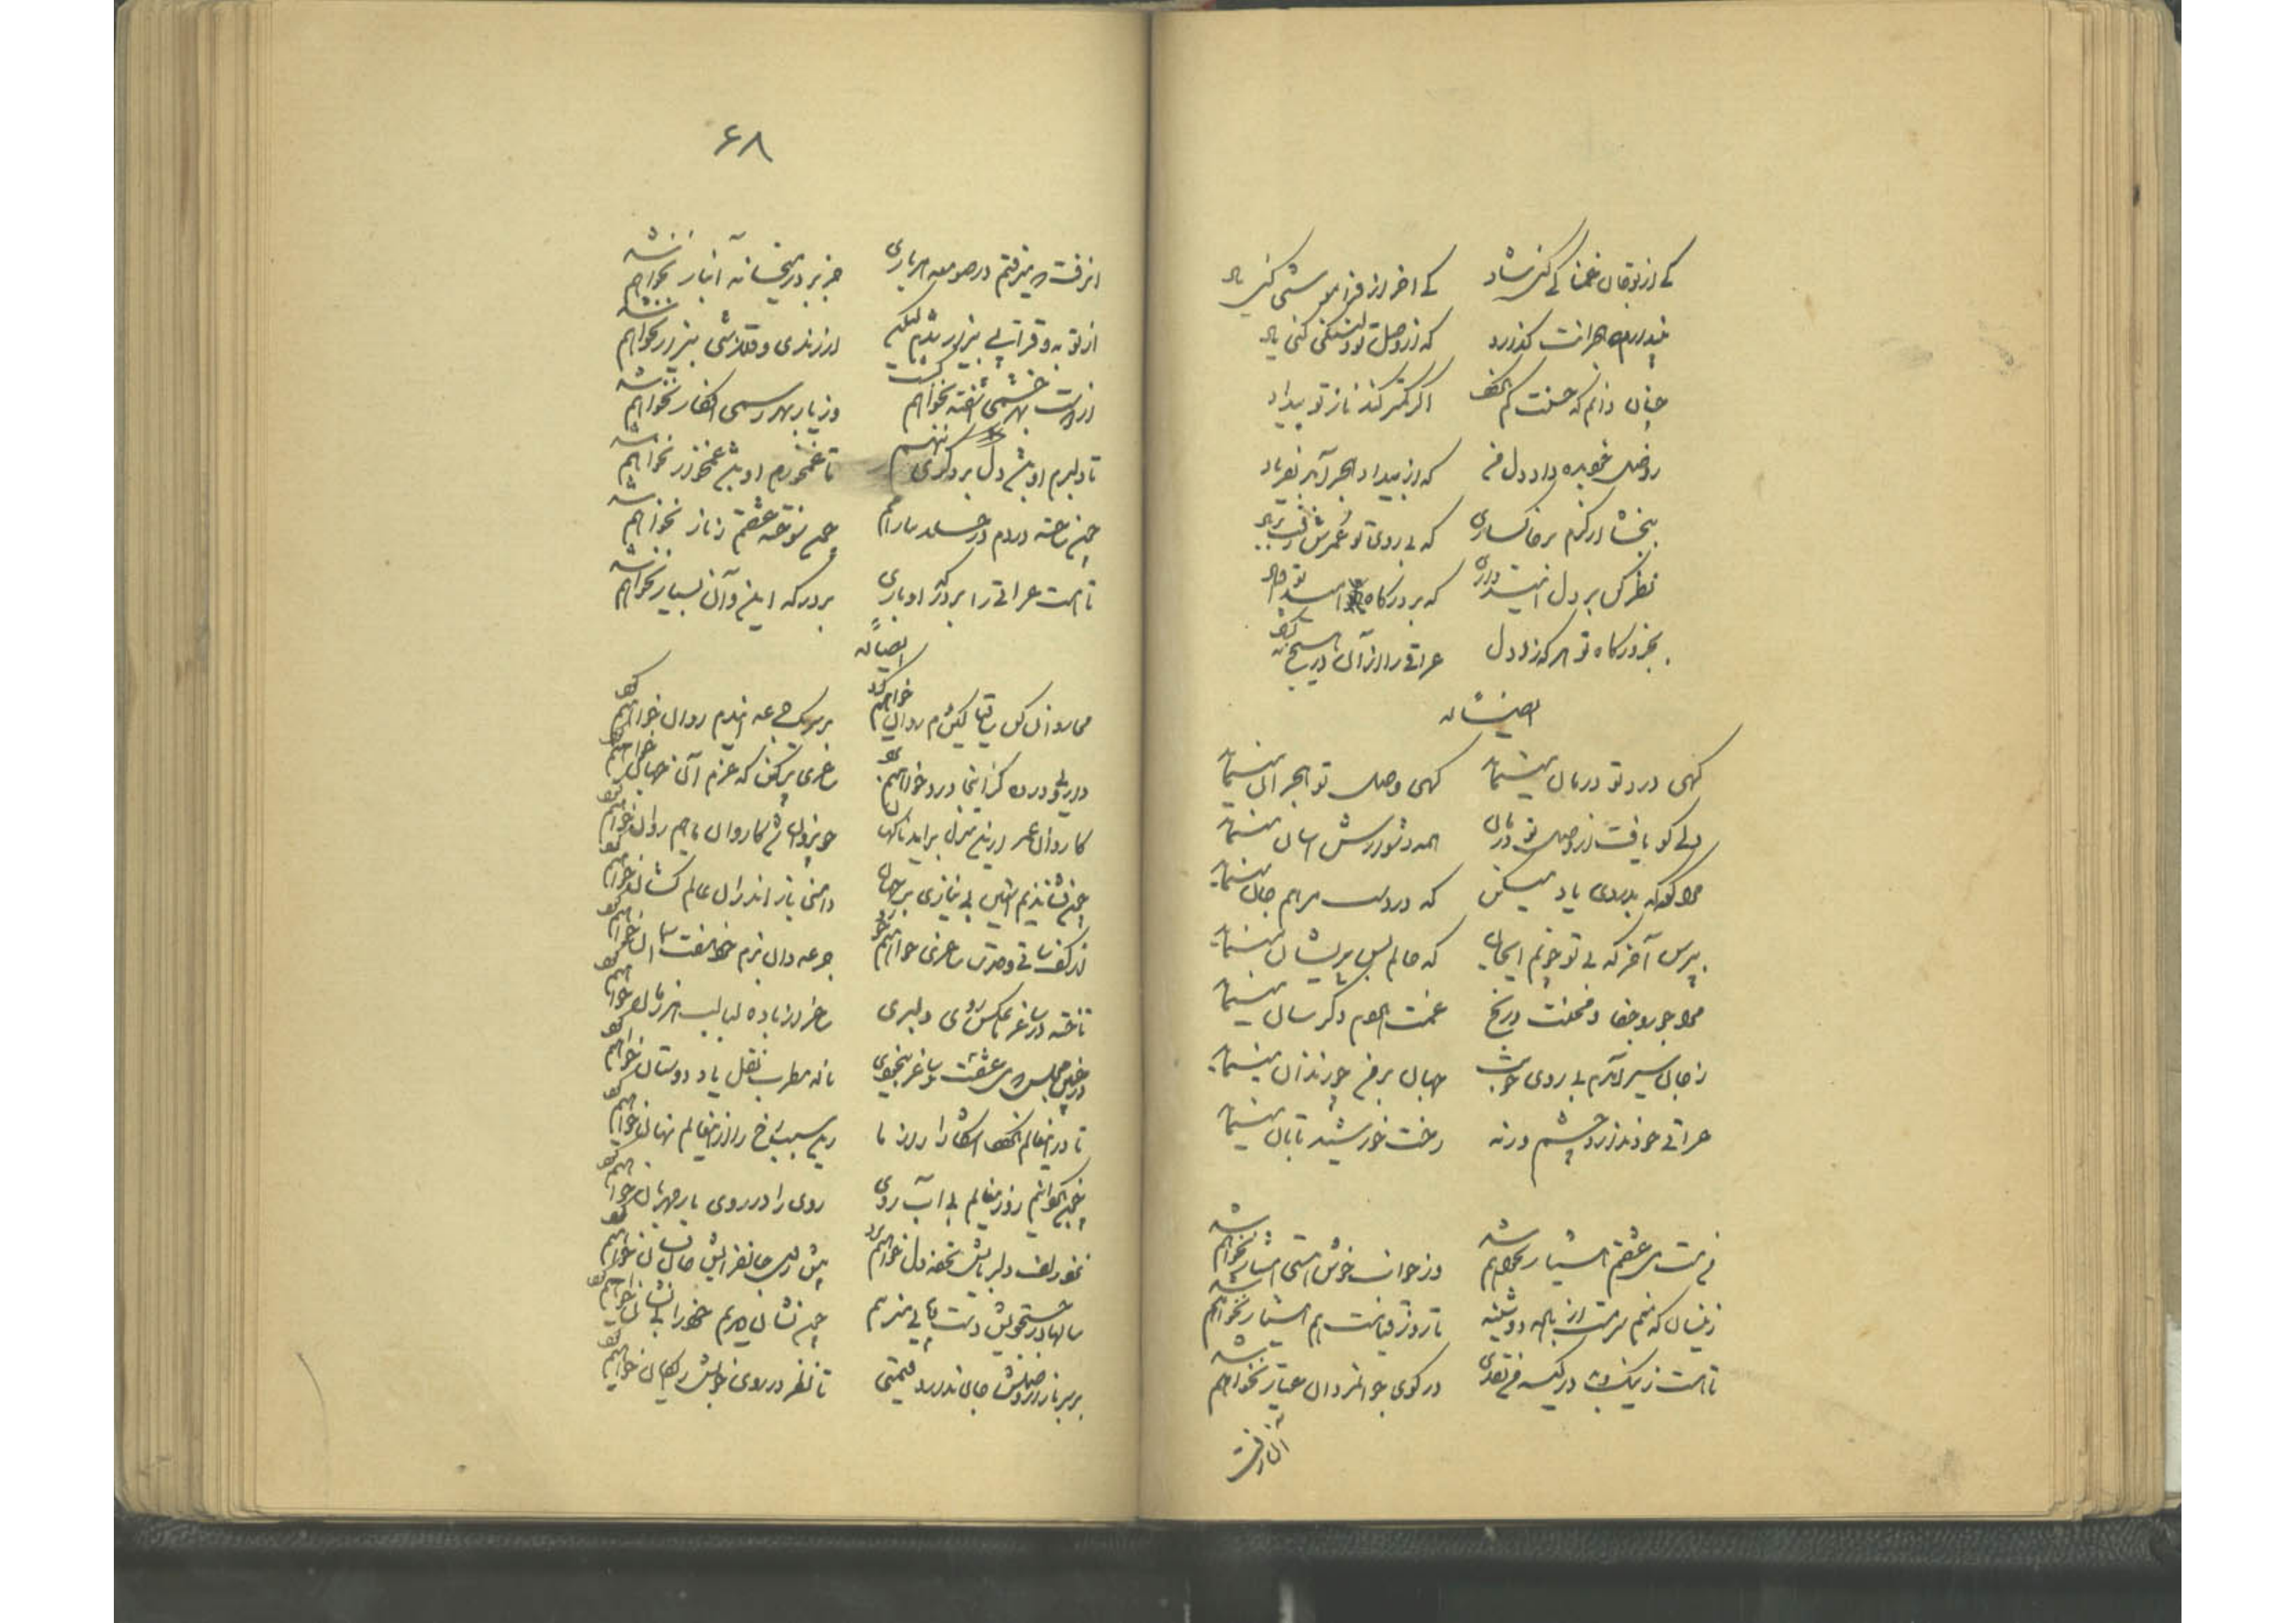 کی از تو جان غمناکی کنی شاد کی آخر از فراموشی کنی یاد
نپندارم هجرانت گذارد که از وصل تو دلتنگی کنی یاد
چنان دانم که حسنت کم نگردد اگر کمتر کند ناز تو بیداد
ز وصلت وعده داد دل من که از بیداد هجر آمد بفریاد
ببخشا از کرم بر خاکساری که بی روی تو عمرش رفت بر باد
نظر کن بر دل امیدواری که بر درگاه تو امید
بجز درگاه تو هر در که زد دل عراقی را از آن در هیچ نگشاد
ایضاً له
نگهی درد تو درمان مینماید گهی وصل تو هجران مینماید
دلی کو یافت از وصل تو درمان همه دشوارش آسان مینماید
مرا گه گه بدردی یاد میکن که دردت مرهم جان مینماید
بپرس آخر که بی تو چونم ایجان که حالم بس پریشان مینماید
مرا جور و جفا و محنت و رنج غمت هر دم دگر سان مینماید
ز جان سیر آمدم بی روی خوبت جهان بر من چو زندان مینماید
عراقی خود ندارد چشم ورنه رخت خورشید تابان مینماید
من مست می عشقم هشیار نخواهم شد وز خواب خوش مستی بیدار نخواهم شد
زینسان که منم سرمست از باده دوشینه تا روز قیامت هم هشیار نخواهم شد
تا هست ز نیک و بد در کیسه من نقدی در کوی جوانمردان عیار نخواهم شد
آن رفت
۶۸
آن رفت که میرفتم در صومعه هر باری جز بر در میخانه این بار نخواهم شد
از توبه و قرایی بیزار شدم لیکن از رندی و قلاشی بیزار نخواهم شد
از دوست بهر خشمی آشفته نخواهم گشت وز یار بهر رسمی افکار نخواهم شد
تا دلبرم او باشد دل بر دگری ننهم تا غمخورم او باشد غمخوار نخواهم شد
چون ساخته دردم در حلقه نیارامم چون سوخته عشقم در نار نخواهم شد
تا هست عراقی را بر درگه او باری بر درگه این و آن بسیار نخواهم شد
ایضاً له
می روان کن ساقیا کین دم روان خواهیم کرد بهر یک جرعه ایندم روان خواهیم کرد
دردیی در ده کز اینجا درد سر خواهیم برد ساغری پر کن که عزم آن جهان خواهیم کرد
کاروان عمر ازین منزل برآید ناگهان چون روان شد کاروان ما هم روان خواهیم کرد
چون فشاندیم آستین بی نیازی بر جهان دامن ناز اندر آن عالم کشان خواهیم کرد
از کف ساقی وحدت ساغری خواهیم خورد جرعه دان بزم خود هفت آسمان خواهیم کرد
تافته در ساغر ما عکس روی دلبری ساغر از باده لبالب هر زمان خواهیم کرد
در چنین مجلس می عشقست و ساغر بیخودی ناله مطرب نقل یاد دوستان خواهیم کرد
تا درین عالم نگردد آشکارا راز ما زین سپس رخ را ازین عالم نهان خواهیم کرد
چون نگردانیم روز این عالم بی آب روی روی را در روی یار مهربان خواهیم کرد
نغز زلف دلربایش تحفه دل خواهیم برد پیش لب جان فزایش جان فشان خواهیم کرد
سالها در جستجویش دست و پایی میزنیم چون نشان دیدیم خود را بی نشان خواهیم کرد
بر سر بازار وصلش جان ندارد قیمتی تا نظر در روی خوبش رایگان خواهیم کرد